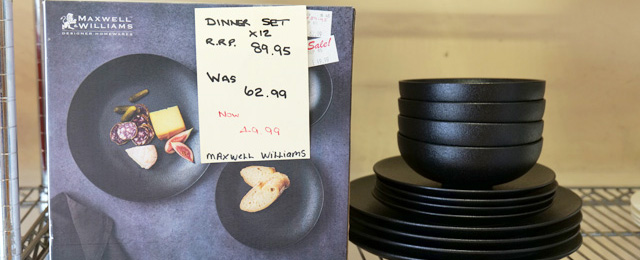 MAXWELL
WILLIAMS
DESIGNER HOMEWARES
DINNER SET
x12
R.R.P. 89.95
WAS
62.99
NOW
49.99
MAXWELL WILLIAMS
Sale!